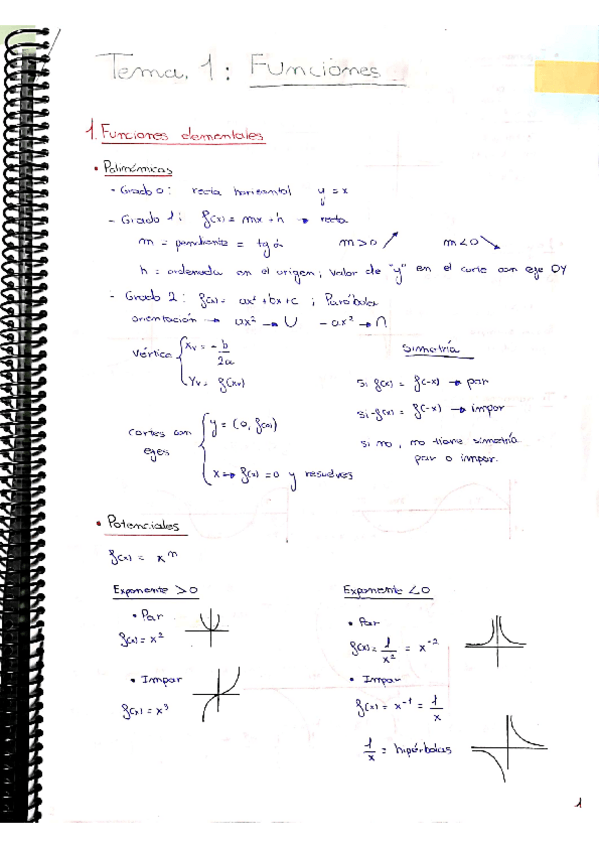 Tema. 1: Funciones
1. Funciones elementales
• Polinómicas
- Grado 0: recta horizontal y = x
- Grado 1: f(x) = mx + h → recta
m = pendiente = tg α m>0 ↗ m<0 ↘
h = ordenada en el origen; valor de "y" en el corte con eje OY
- Grado 2: f(x) = ax² + bx + c ; Parábola
orientación → ax² → ∪ - ax² → ∩
Vértice { Xv = - b/2a
Yv = f(xv)
Simetría
Si f(x) = f(-x) → par
si -f(x) = f(-x) → impar
si no, no tiene simetría
par o impar.
cortes con ejes { y = (0, f(0))
x → f(x) = 0 y resuelves
• Potenciales
f(x) = x^n
Exponente > 0
• Par
f(x) = x²
• Impar
f(x) = x³
Exponente < 0
• Par
f(x) = 1/x² = x⁻²
• Impar
f(x) = x⁻¹ = 1/x
1/x = hipérbolas
1